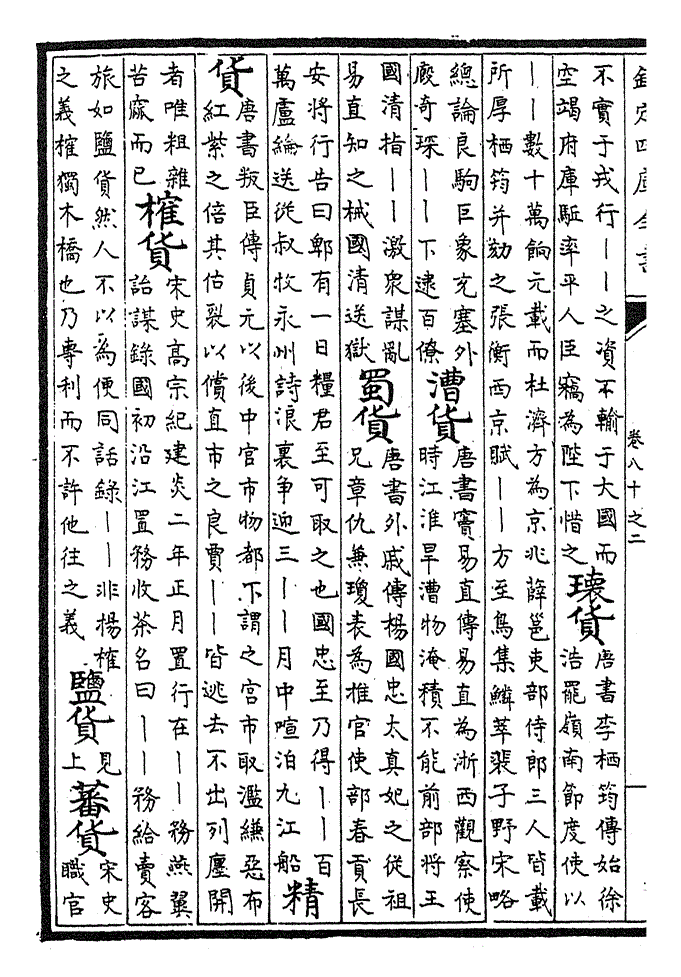 欽定四庫全書
卷八十之二
不實于戎行——之資不輸于大國而
空竭府庫駈率平人臣竊為陛下惜之
瓌貨
唐書李栖筠傳始徐
浩罷嶺南節度使以
——數十萬餉元載而杜濟方為京兆薛邕吏部侍郎三人皆載
所厚栖筠并劾之張衡西京賦——方至鳥集鱗萃裴子野宋略
總論良駒巨象充塞外
廄奇琛——下逮百僚
漕貨
唐書竇易直傳易直為浙西觀察使
時江淮旱漕物淹積不能前部將王
國清指——激衆謀亂
易直知之械國清送獄
蜀貨
唐書外戚傳楊國忠太真妃之從祖
兄章仇兼瓊表為推官使部春貢長
安將行告曰郫有一日糧君至可取之也國忠至乃得——百
萬盧綸送從叔牧永州詩浪裏争迎三——月中喧泊九江船
精
貨
唐書叛臣傳貞元以後中官市物都下謂之宮市取濫縑惡布
紅紫之倍其估裂以償直市之良賈——皆逃去不出列廛開
者唯粗雜
苦窳而已
榷貨
宋史高宗紀建炎二年正月置行在——務燕翼
詒謀錄國初沿江置務收茶名曰——務給賣客
旅如鹽貨然人不以為便同話錄——非楊榷
之義榷獨木橋也乃專利而不許他往之義
鹽貨
見
上
蕃貨
宋史
職官